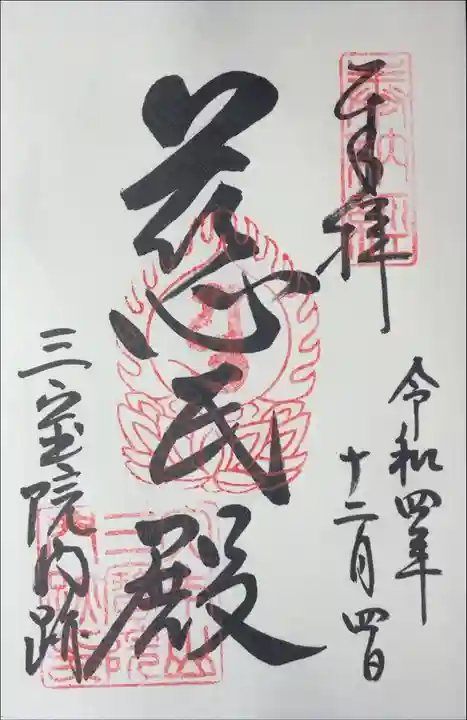 奉拝
令和四年
十二月四日
慈氏殿
三宝院門跡